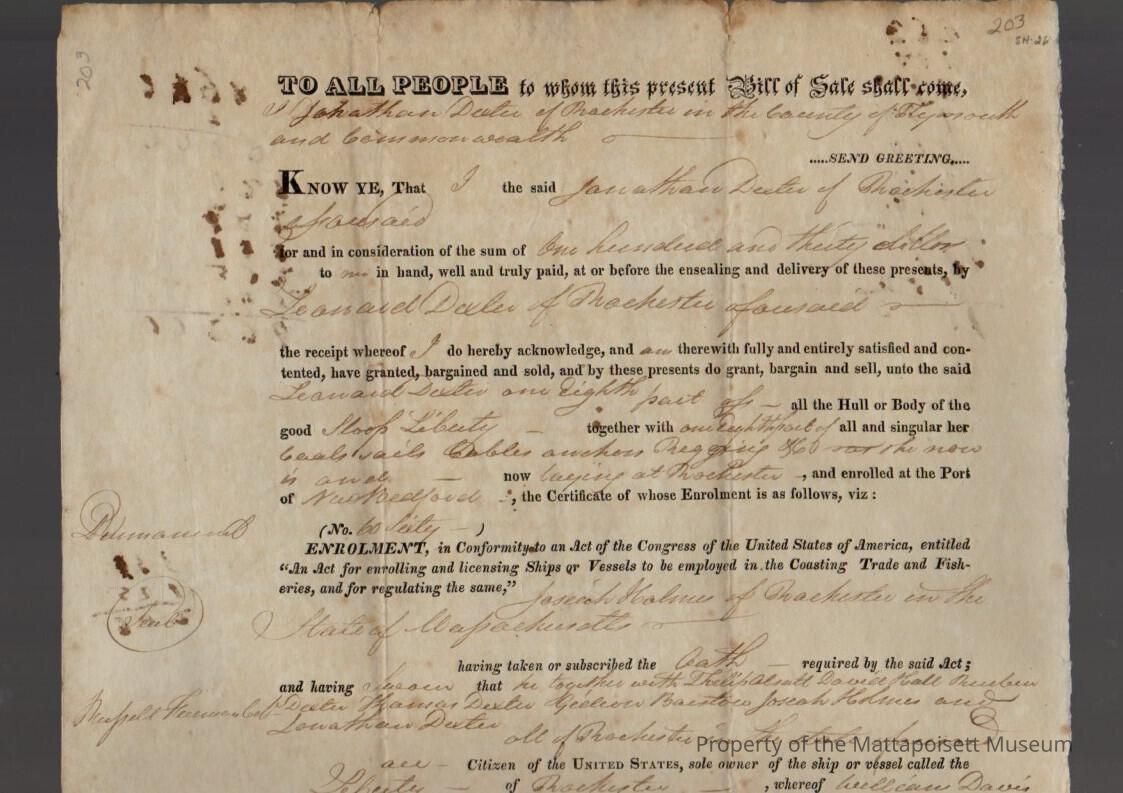 203
SH-26
203
TO ALL PEOPLE to whom this present Bill of Sale shall come,
I Jonathan Dexter of Rochester in the County of Plymouth
and Commonwealth
.....SEND GREETING.....
KNOW YE, That I the said Jonathan Dexter of Rochester
aforesaid
for and in consideration of the sum of One hundred and thirty dollar
to me in hand, well and truly paid, at or before the ensealing and delivery of these presents, by
Leonard Dexter of Rochester aforesaid
the receipt whereof I do hereby acknowledge, and am therewith fully and entirely satisfied and con-
tented, have granted, bargained and sold, and by these presents do grant, bargain and sell, unto the said
Leonard Dexter one Eighth part of all the Hull or Body of the
good Sloop Liberty together with one Eighth part of all and singular her
sails Cables anchors Rigging &c she now
is and now laying at Rochester, and enrolled at the Port
of New Bedford, the Certificate of whose Enrolment is as follows, viz :
(No. 60 Sixty )
Permanent
ENROLMENT, in Conformity to an Act of the Congress of the United States of America, entitled
“An Act for enrolling and licensing Ships or Vessels to be employed in the Coasting Trade and Fish-
eries, and for regulating the same,” Josiah Holmes of Rochester in the
State of Massachusetts
Seal
having taken or subscribed the Oath required by the said Act;
and having Sworn that he together with David Hall Reuben
Dexter Thomas Dexter Gideon Barstow Joseph Holmes and
Jonathan Dexter
Russell Freeman Col
all of Rochester in the State aforesaid
are Citizen of the UNITED STATES, sole owner of the ship or vessel called the
Liberty of Rochester, whereof William Davis
Property of the Mattapoisett Museum